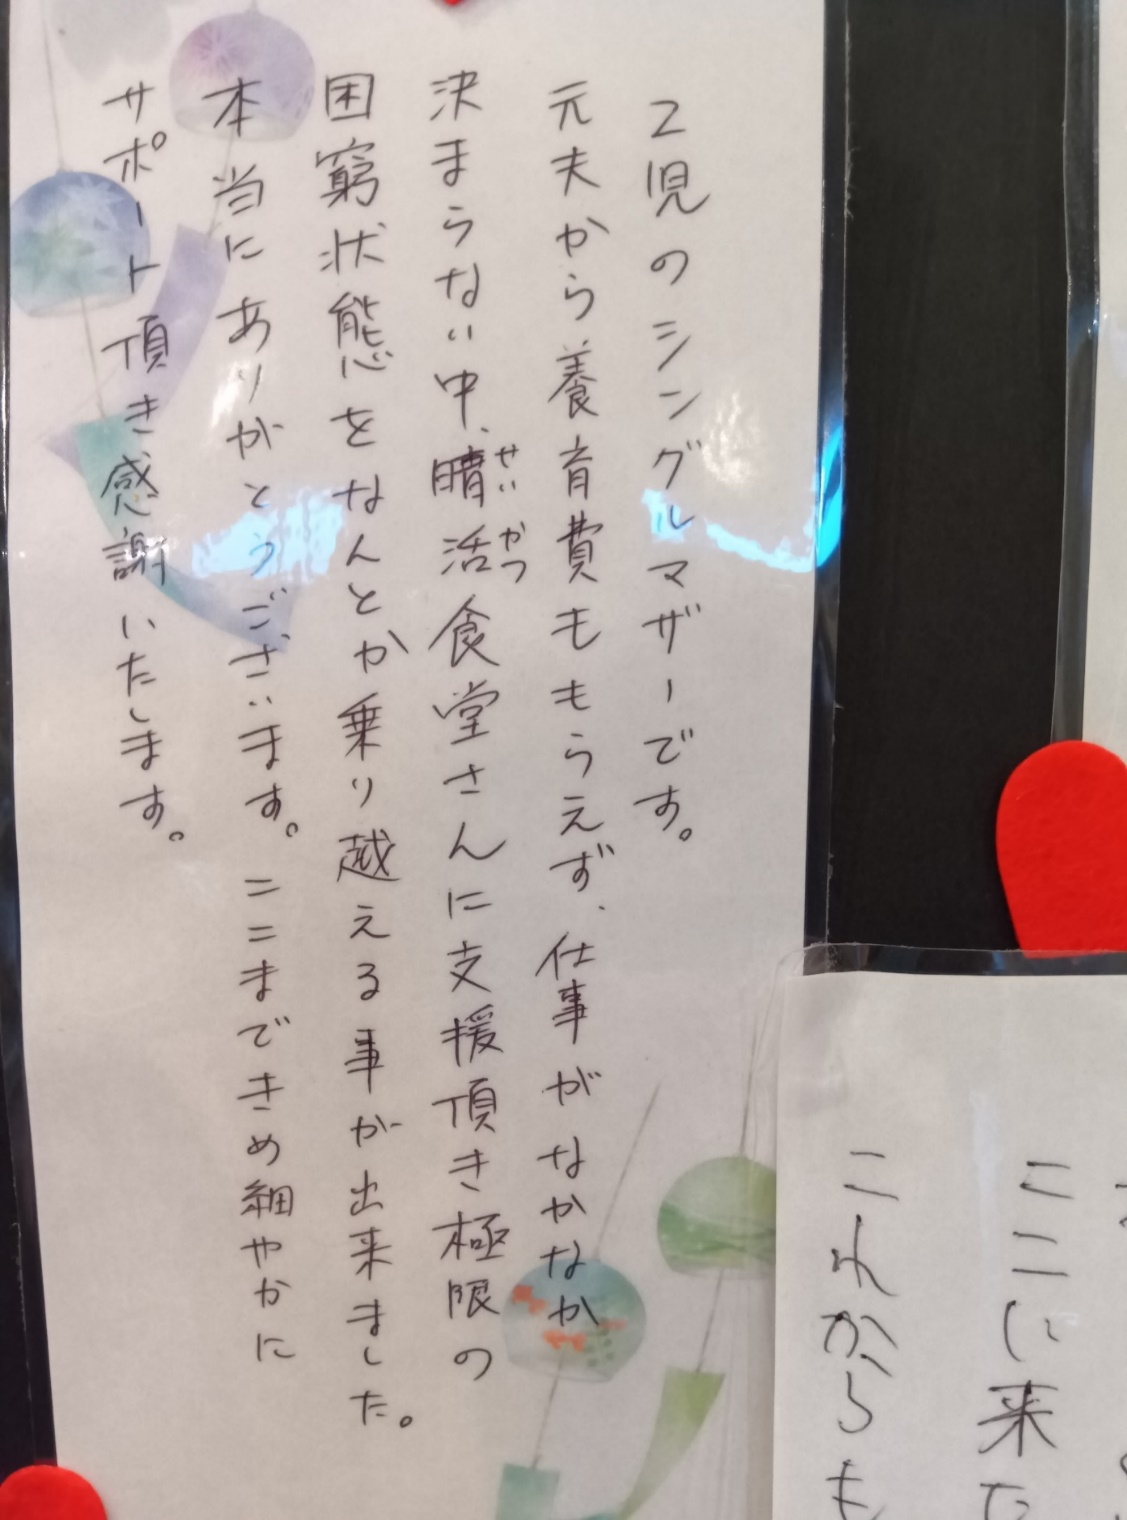 2児のシングルマザーです。
元夫から養育費ももらえず、仕事がなかなか
決まらない中、晴活食堂さんに支援頂き極限の
せいかつ
困窮状態をなんとか乗り越える事が出来ました。
本当にありがとうございます。ここまできめ細やかに
サポート頂き感謝いたします。
ここに来た
これからも